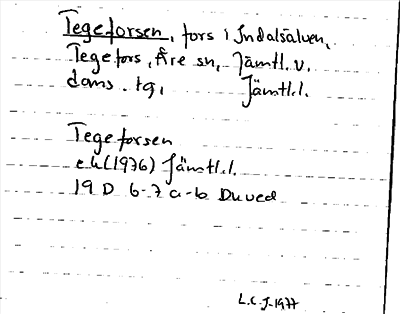 Tegeforsen, fors i Indalsälven,
Tegefors, Åre sn, Jämtl. v.
doms. tg, Jämtl.l.
Tegeforsen
e.k(1976) Jämtl.l.
19 D 6-7 a-b Duved
L.C.J-1977